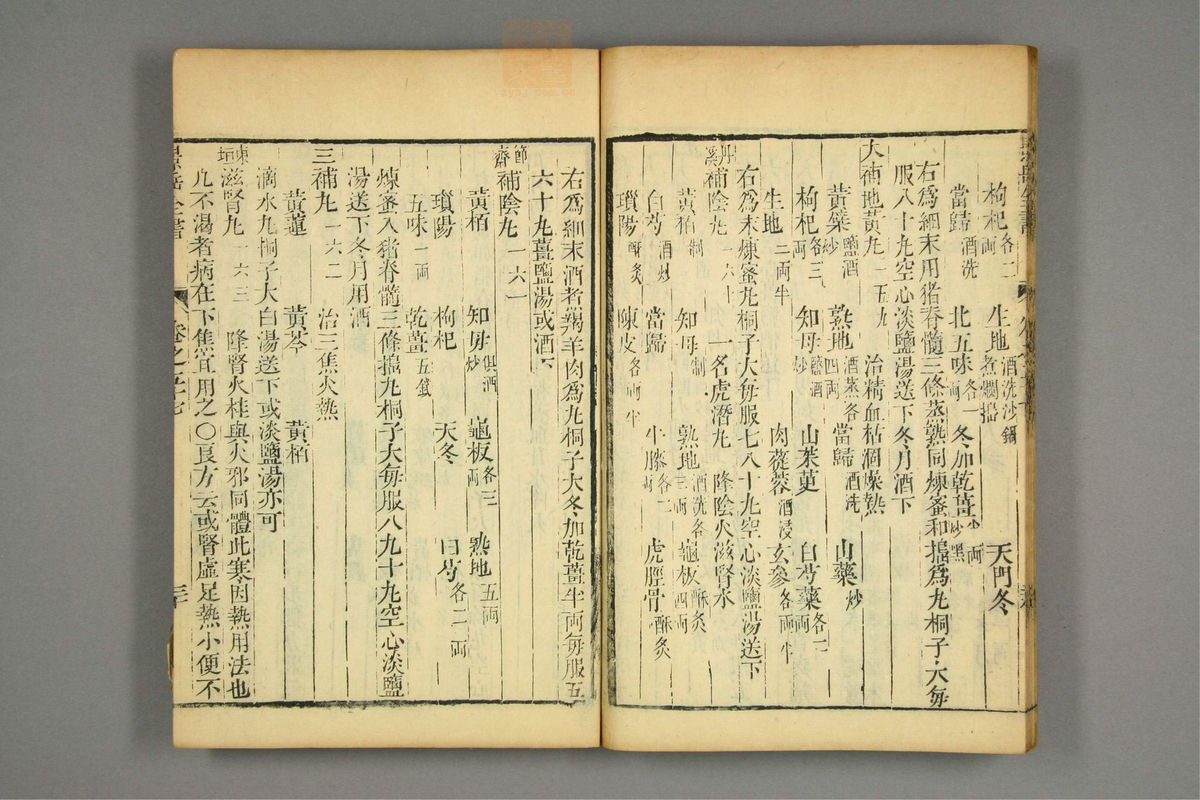 枸杞各二両 生地酒洗沙鍋煮爛搗 天門冬
當歸酒洗 北五味各一両 冬加乾薑炒黑
右爲細末用猪脊髓三條蒸熟同煉蜜和搗爲丸桐子大每
服八十九空心淡鹽湯送下冬月酒下
大補地黃丸一五九 治精血枯涸燥熱
黃蘗鹽酒炒 熟地酒蒸各四両 當歸酒洗 山藥炒
枸杞各三両 知母鹽酒炒 山茱萸 白芍藥各二両
生地二両半 肉蓯蓉酒浸 玄參各両半
右爲末煉蜜丸桐子大每服七八十九空心淡鹽湯送下
丹溪補陰丸一六十 一名虎潛丸 降陰火滋腎水
黃栢制 知母制 熟地酒洗各三両 龜板酥炙四両
白芍酒炒 當歸 牛膝各二両 虎脛骨酥炙
瑣陽酥炙 陳皮各両半
右爲細末酒者羯羊肉爲丸桐子大冬加乾薑半両每服五
六十九薑鹽湯或酒下
節齋補陰丸一六一
黃栢 知母俱酒炒 龜板各三両 熟地五両
瑣陽 枸杞 天冬 白芍各二両
五味一両 乾薑五錢
煉蜜入猪脊髓三條搗丸桐子大每服八九十九空心淡鹽
湯送下冬月用酒
三補丸一六二 治三焦火熱
黃蓮 黃芩 黃栢
滴水丸桐子大白湯送下或淡鹽湯亦可
東垣滋腎丸一六三 降腎火桂與火邪同體此寒因熱用法也
凡不渴者病在下焦宜用之〇良方云或腎虛足熱小便不